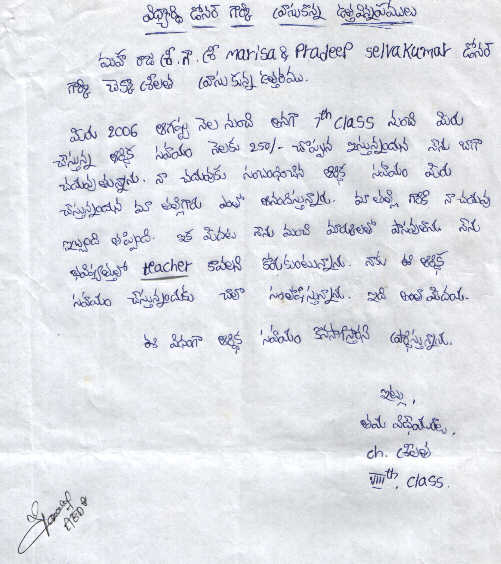 విద్యార్థి డోనర్ గార్కి వ్రాసుకొన్న ఉత్తరవిన్నపములు
మహా రాజ శ్రీ. గౌ. శ్రీ Marisa & Pradeep Selvakumar డోనర్
గార్కి చెక్కా శ్రీలత వ్రాసుకున్న ఉత్తరము.
మీరు 2006 ఆగష్టు నెల నుంచి అనగా 7th class నుండి మీరు
చేస్తున్న ఆర్థిక సహాయం నెలకు 250/- చొప్పున ఇస్తున్నందున నేను బాగా
చదువుతున్నాను. నా చదువుకు సంబంధించిన ఆర్థిక సహాయం మీరు
చేస్తున్నందున మా తల్లిగారు ఎంతో ఆనందిస్తున్నారు. మా తల్లి గారికి నా చదువు
ఇబ్బంది తప్పింది. ఇక మీదట నేను మంచి మార్కులతో పాసవుతాను. నేను
భవిష్యత్తులో teacher కావాలని కోరుకుంటున్నాను. నాకు ఈ ఆర్థిక
సహాయం చేస్తున్నందుకు చాలా సంతోషిస్తున్నాను. ఇది అంతా మీదయ.
ఈ విధంగా ఆర్థిక సహాయం కొనసాగిస్తారని ప్రార్థిస్తున్నాను.
ఇట్లు,
తమ విధేయురాలు,
ch. శ్రీలత
VIIIth, class.